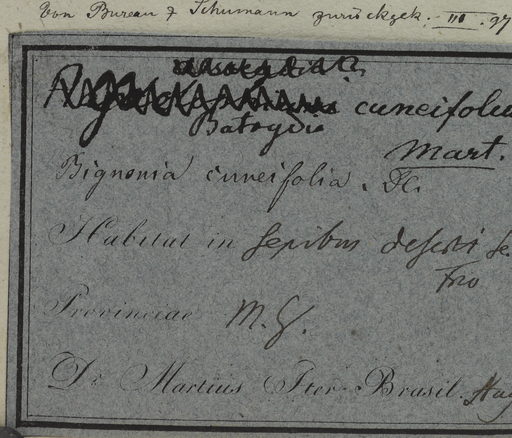 Von Bureau & Schumann zurückgek. III. 97
cuneifoliu
Mart.
Bignonia cuneifolia. DC.
Habitat in sepibus deserti
Provinciae M. G.
Dr. Martius Iter Brasil.